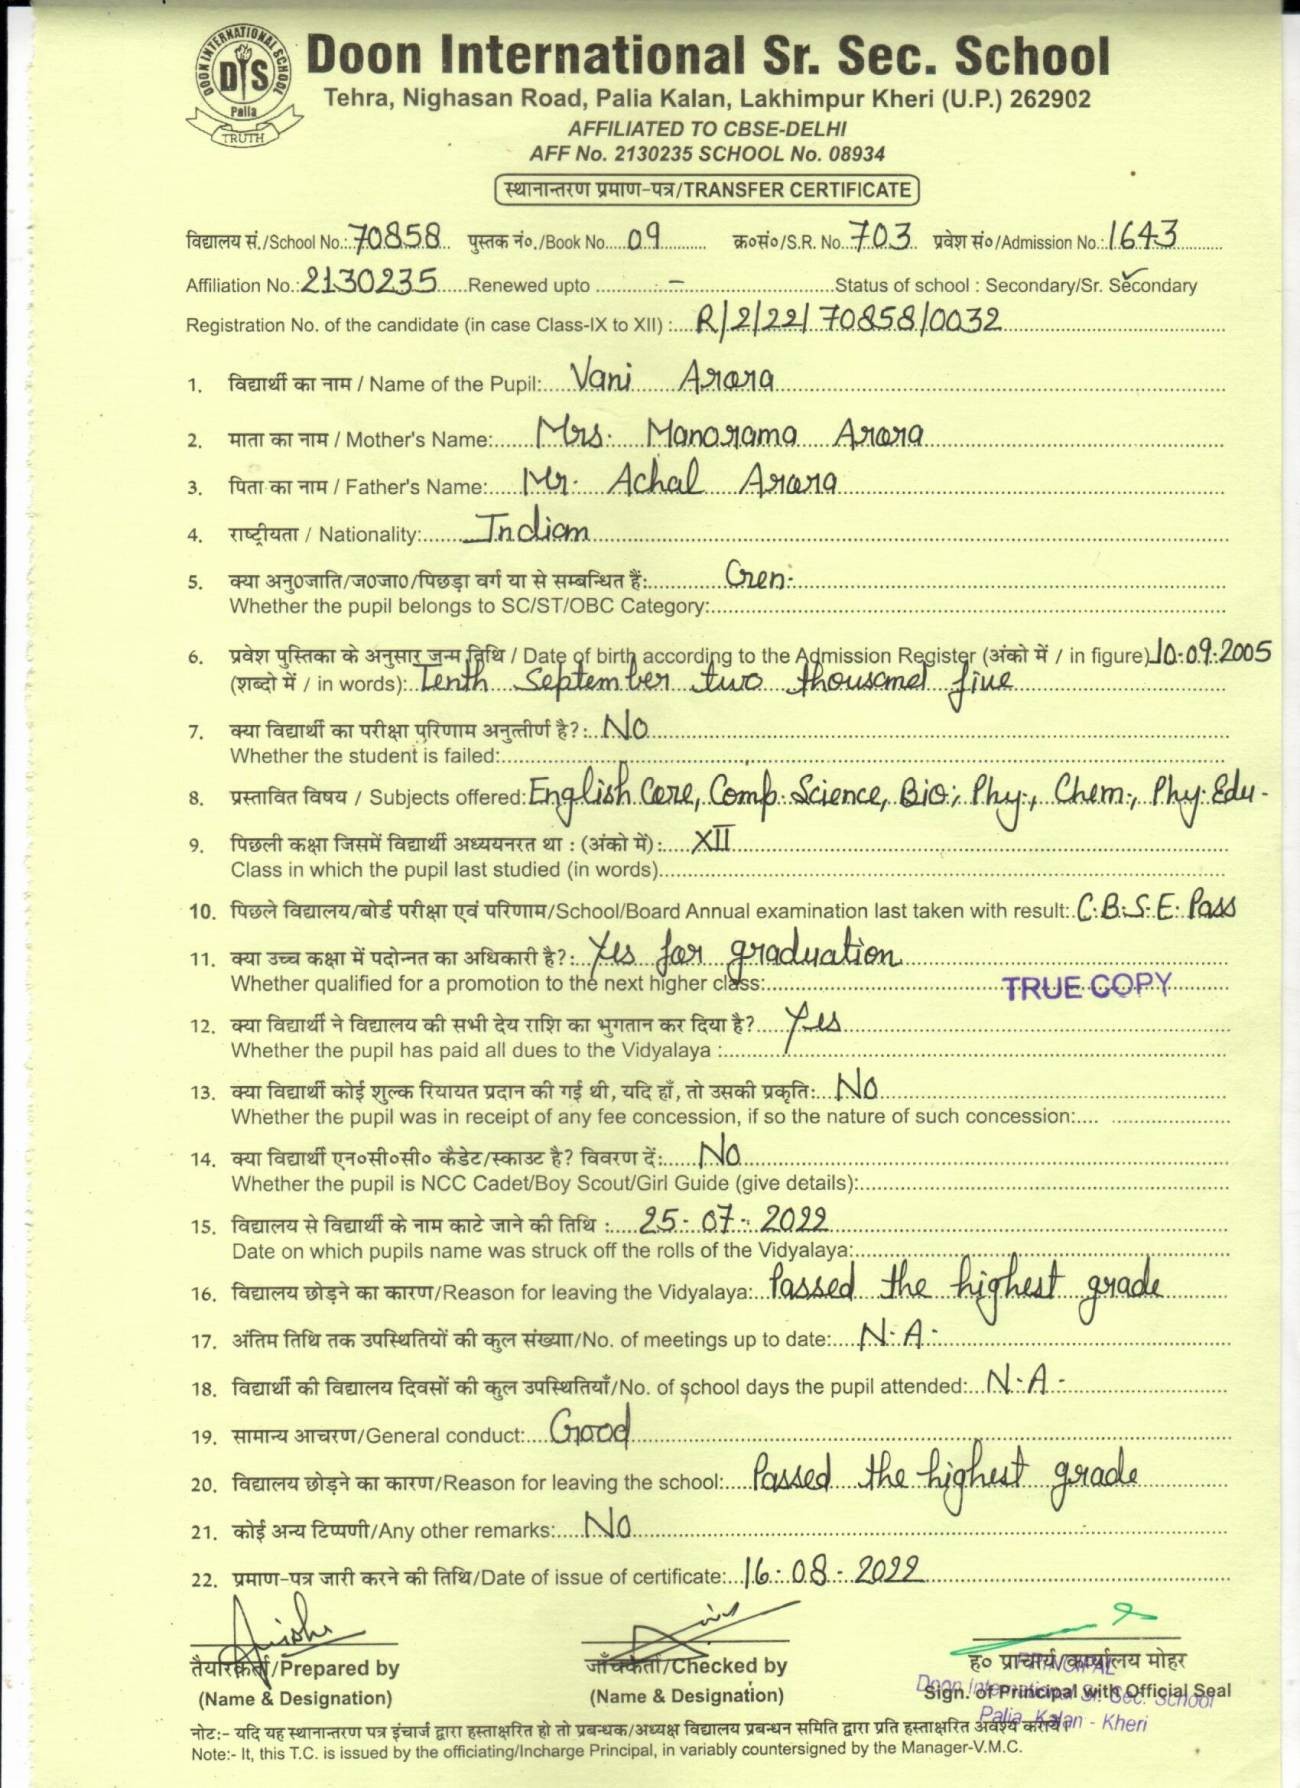 DOON INTERNATIONAL SCHOOL
DIS
Palia
TRUTH
Doon International Sr. Sec. School
Tehra, Nighasan Road, Palia Kalan, Lakhimpur Kheri (U.P.) 262902
AFFILIATED TO CBSE-DELHI
AFF No. 2130235 SCHOOL No. 08934
स्थानान्तरण प्रमाण-पत्र/TRANSFER CERTIFICATE
विद्यालय सं./School No.: 70858 पुस्तक नं०./Book No. 09 क्र०सं०/S.R. No. 703 प्रवेश सं०/Admission No.: 1643
Affiliation No.: 2130235 Renewed upto - Status of school : Secondary/Sr. Secondary
Registration No. of the candidate (in case Class-IX to XII) : R/2/22/70858/0032
1. विद्यार्थी का नाम / Name of the Pupil: Vani Arora
2. माता का नाम / Mother's Name: Mrs. Manorama Arora
3. पिता का नाम / Father's Name: Mr. Achal Arora
4. राष्ट्रीयता / Nationality: Indian
5. क्या अनु0जाति/ज0जा0/पिछड़ा वर्ग या से सम्बन्धित हैं: Gen.
Whether the pupil belongs to SC/ST/OBC Category:
6. प्रवेश पुस्तिका के अनुसार जन्म तिथि / Date of birth according to the Admission Register (अंको में / in figure) 10.09.2005
(शब्दो में / in words): Tenth September two thousand five
7. क्या विद्यार्थी का परीक्षा परिणाम अनुत्तीर्ण है?: No
Whether the student is failed:
8. प्रस्तावित विषय / Subjects offered: English Core, Comp. Science, Bio., Phy., Chem., Phy. Edu.
9. पिछली कक्षा जिसमें विद्यार्थी अध्ययनरत था : (अंको में) : XII
Class in which the pupil last studied (in words)
10. पिछले विद्यालय/बोर्ड परीक्षा एवं परिणाम/School/Board Annual examination last taken with result: C.B.S.E. Pass
11. क्या उच्च कक्षा में पदोन्नत का अधिकारी है?: Yes for graduation
Whether qualified for a promotion to the next higher class:
TRUE COPY
12. क्या विद्यार्थी ने विद्यालय की सभी देय राशि का भुगतान कर दिया है? Yes
Whether the pupil has paid all dues to the Vidyalaya :
13. क्या विद्यार्थी कोई शुल्क रियायत प्रदान की गई थी, यदि हाँ, तो उसकी प्रकृति: No
Whether the pupil was in receipt of any fee concession, if so the nature of such concession:
14. क्या विद्यार्थी एन०सी०सी० कैडेट/स्काउट है? विवरण दें: No
Whether the pupil is NCC Cadet/Boy Scout/Girl Guide (give details):
15. विद्यालय से विद्यार्थी के नाम काटे जाने की तिथि : 25-07-2022
Date on which pupils name was struck off the rolls of the Vidyalaya:
16. विद्यालय छोड़ने का कारण/Reason for leaving the Vidyalaya: Passed the highest grade
17. अंतिम तिथि तक उपस्थितियों की कुल संख्याा/No. of meetings up to date: N.A.
18. विद्यार्थी की विद्यालय दिवसों की कुल उपस्थितियाँ/No. of school days the pupil attended: N.A.
19. सामान्य आचरण/General conduct: Good
20. विद्यालय छोड़ने का कारण/Reason for leaving the school: Passed the highest grade
21. कोई अन्य टिप्पणी/Any other remarks: No
22. प्रमाण-पत्र जारी करने की तिथि/Date of issue of certificate: 16-08-2022
तैयारकर्ता/Prepared by
(Name & Designation)
जाँचकर्ता/Checked by
(Name & Designation)
ह० प्राचार्य/कार्यालय मोहर
Sign. of Principal with Official Seal
PRINCIPAL
Doon International Sr. Sec. School
Palia Kalan - Kheri
नोट:- यदि यह स्थानान्तरण पत्र इंचार्ज द्वारा हस्ताक्षरित हो तो प्रबन्धक/अध्यक्ष विद्यालय प्रबन्धन समिति द्वारा प्रति हस्ताक्षरित अवश्य करायें।
Note:- It, this T.C. is issued by the officiating/Incharge Principal, in variably countersigned by the Manager-V.M.C.